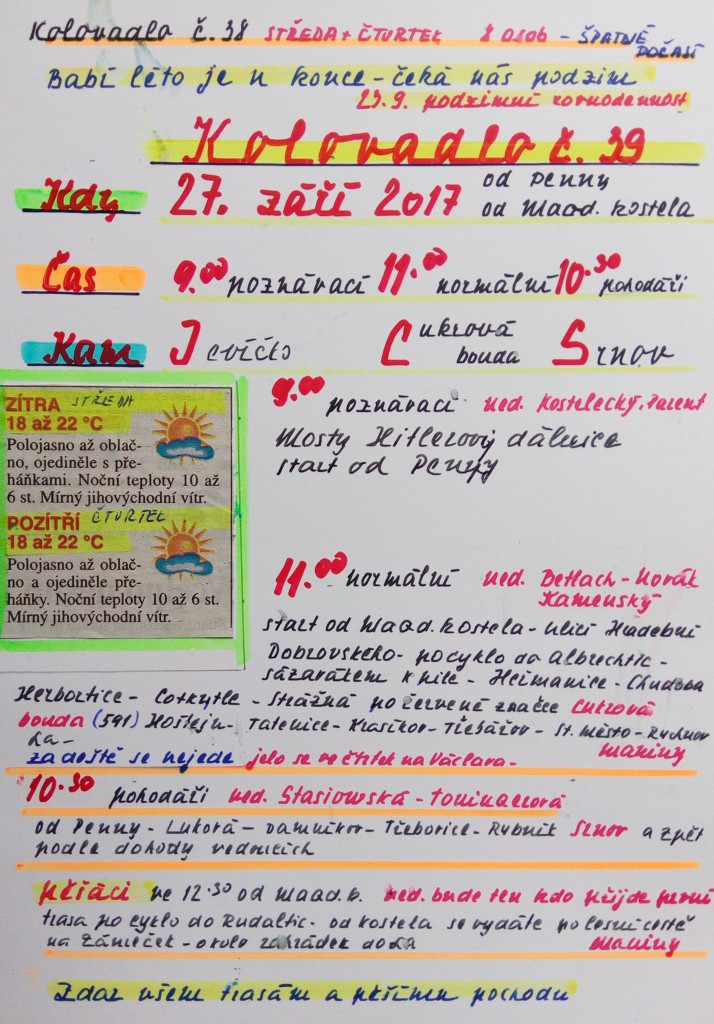 Kolovadlo č. 38 STŘEDA + ČTVRTEK 8 osob - ŠPATNÉ
POČASÍ
Babí léto je u konce - čeká nás podzim
23.9. podzimní rovnodennost
Kolovadlo č. 39
Kdy 27. září 2017 od Penny
od Maod. kostela
Čas 9.00 poznávací 11.00 normální 10.30 pohodáři
Kam Jevíčko Cukrová
bouda Srnov
ZÍTRA STŘEDA
18 až 22 °C
Polojasno až oblač-
no, ojediněle s pře-
háňkami. Noční teploty 10 až
6 st. Mírný jihovýchodní vítr.
POZÍTŘÍ ČTVRTEK
18 až 22 °C
Polojasno až oblač-
no a ojediněle pře-
háňky. Noční teploty 10 až 6 st.
Mírný jihovýchodní vítr.
9.00 poznávací ved. Kostelecký, Parent
Mosty Hitlerovy dálnice
start od Penny
11.00 normální ved. Betlach - Novák
Kamenský
start od Maod. kostela - ulicí Hudební
Dobrovského - po cyklo do Albrechtic -
Sázavátkem k pile - Heřmanice - Chudoba
Herbortice - Cotkytle - Strážná po červené značce Cukrová
bouda (591) Hoštejn - Tatenice - Krasíkov - Třebářov - St. Město - Rychnov
La - Maniny
za deště se nejede jelo se ve čtvrtek na Václava -
10.30 pohodáři ved. Stasiowská - Tominacová
od Penny - Luková - Damníkov - Třebovice - Rybník Srnov a zpět
podle dohody vedoucích
pěšáci ve 12.30 od Maod. k. ved. bude ten kdo přijde první
trasa po cyklo do Rudoltic - od kostela se vydáte po lesní cestě
na Zámeček - okolo zahrádek do LA Maniny
Zdar všem trasám a pěšímu pochodu